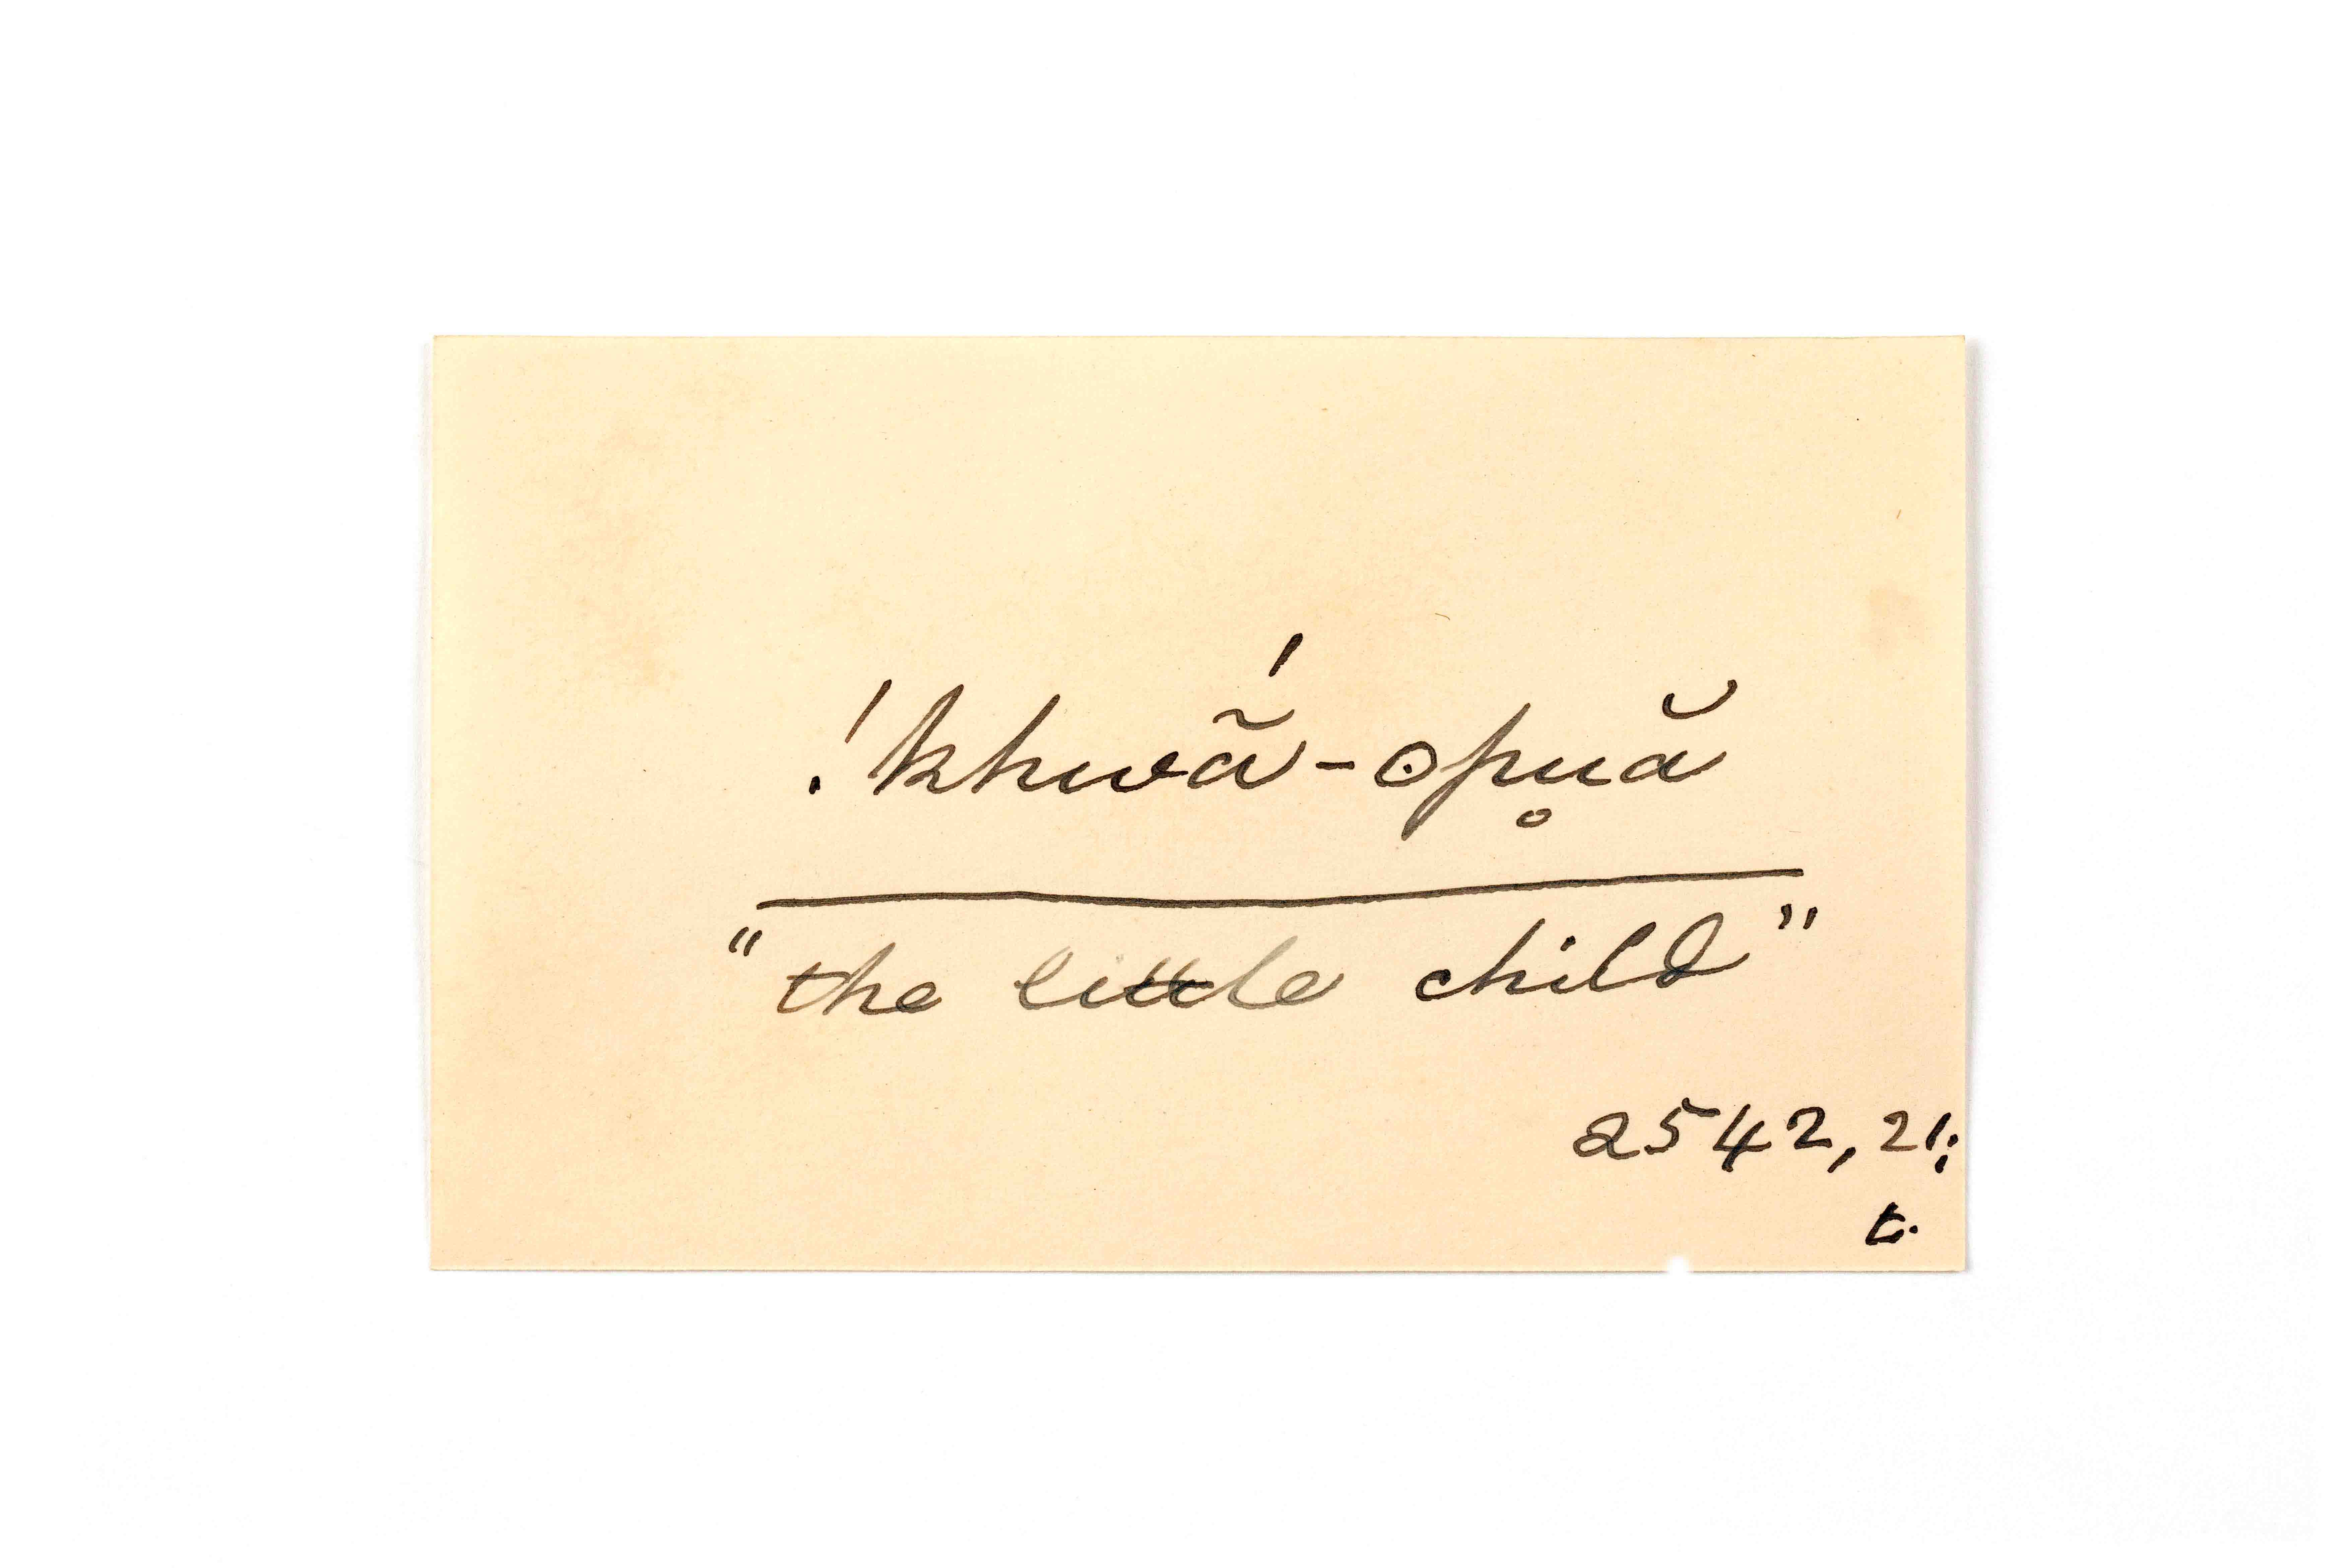 !khwã́-ʘpu̥ă
"the little child"
2542, 21;
t.